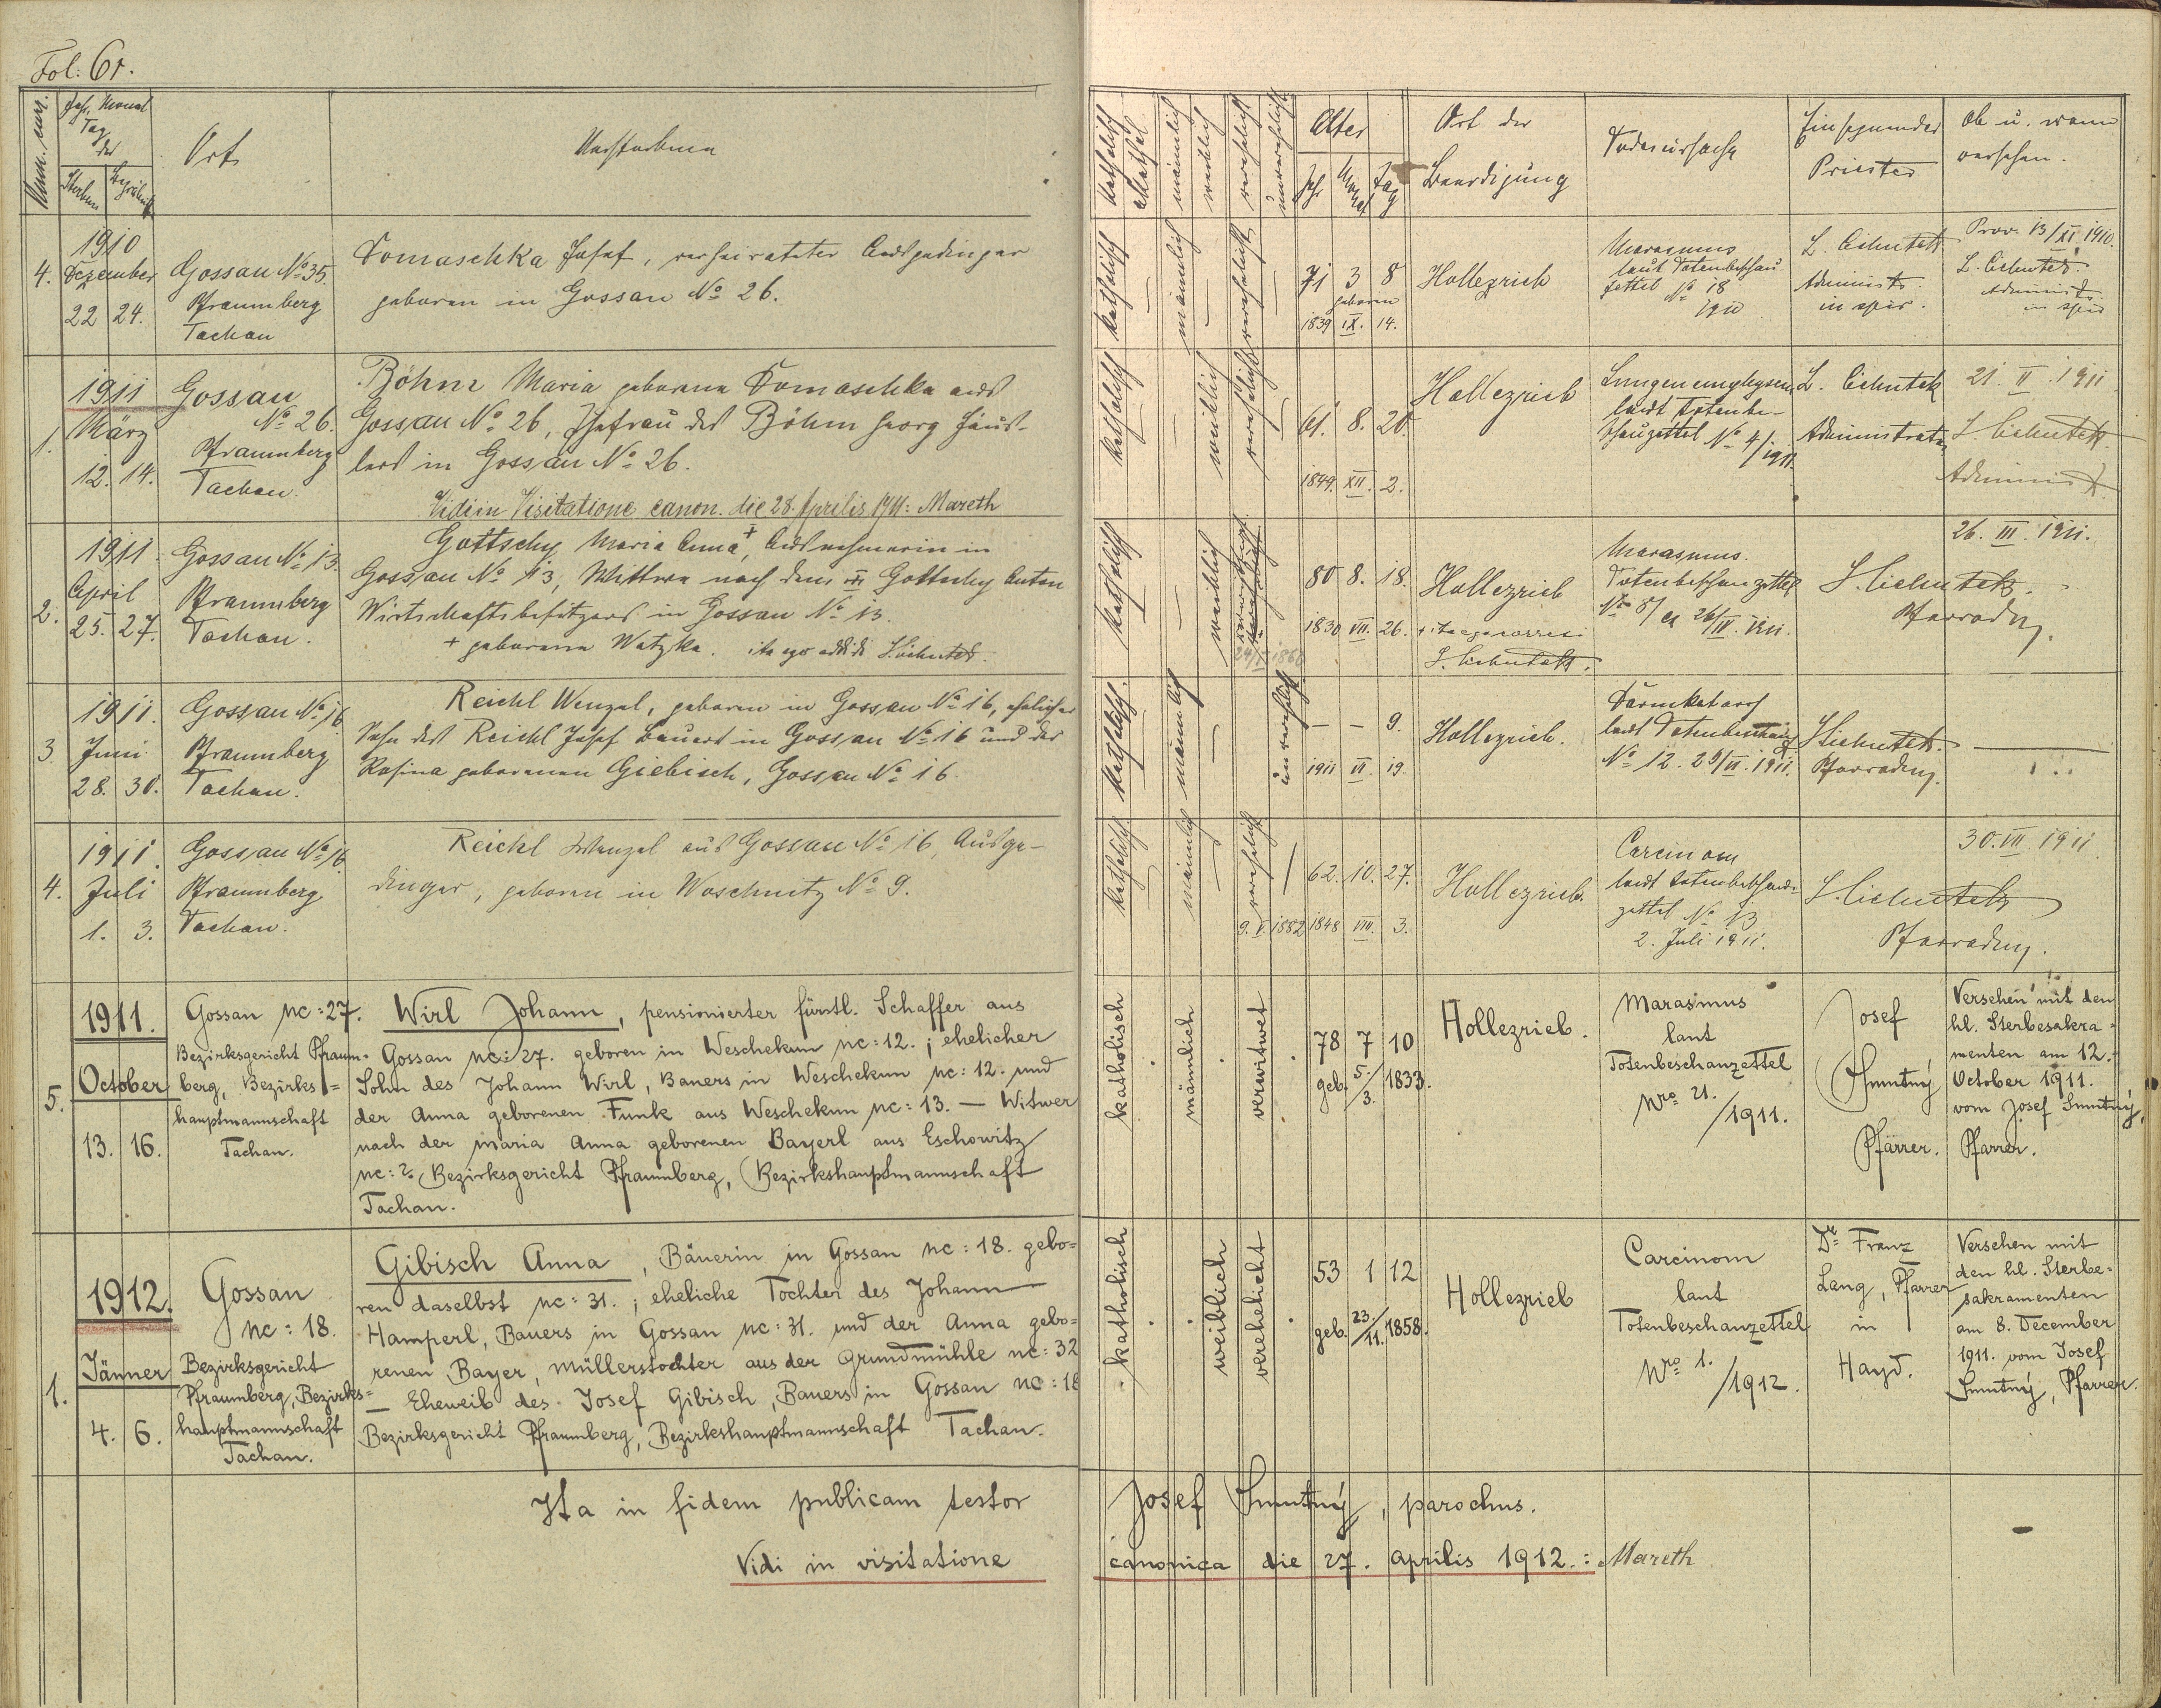 Fol: 61.
Num. curr.
Jahr, Monat
Tag
des
Sterbens
Begräbniß
Ort
Verstorbene
Katholisch
Akathol.
männlich
weiblich
verehelicht
unverehelicht
Alter
Jahr
Monat
Tag
Ort der
Beerdigung
Todesursache
Einsegnender
Priester
Ob u. wann
versehen.
1910
4. Dezember
22 24.
Gossau No 35.
Pfraumberg
Tachau
Domaschka Josef, verheirateter Ausgedinger
geboren in Gossau No 26.
katholisch
männlich
verehelicht
71 3 8
geboren
1839 IX. 14.
Hollezrieb
Marasmus
laut Totenbeschau
zettel No 18
1910
L. Cihutek
Administr.
in spir.
Prov. 13/XI. 1910.
L. Cihutek.
Administr.
in spir
1911
März
1.
12. 14.
Gossau
No 26.
Pfraumberg
Tachau.
Böhm Maria geborene Domaschka aus
Gossau No 26, Ehefrau des Böhm Georg Häus-
lers in Gossau No 26.
Vidi in Visitatione canon. die 28. Aprilis 1911: Mareth
katholisch
weiblich
verehelicht
61. 8. 20.
1849. XII. 2.
Hollezrieb
Lungenemphysem
laut Totenbe-
schauzettel No 4/1911.
L. Cihutek
Administrator
21. II. 1911
L. Cihutek
Administr.
1911
April
2.
25. 27.
Gossau No 13.
Pfraumberg
Tachau.
Gottschy Maria Anna +, Ausnehmerin in
Gossau No 13, Wittwe nach dem Gottschy Anton
Wirtschaftsbesitzers in Gossau No 13.
+ geborene Watzka. ita ego addidi L. Cihutek.
katholisch
weiblich
80 8. 18.
1830 VII. 26.
Hollezrieb
+ ita ego correxi
L. Cihutek.
Marasmus.
Totenbeschauzettel
No 8/ 26/IV. 1911.
L. Cihutek.
Pfarradm.
26. III. 1911.
1911.
3. Juni
28. 30.
Gossau No 16
Pfraumberg
Tachau.
Reichl Wenzel, geboren in Gossau No 16, ehelicher
Sohn des Reichl Josef Bauers in Gossau No 16 und der
Rosina geborenen Giebisch, Gossau No 16.
katholisch
männlich
unverehelicht
– – 9.
1911 VI. 19.
Hollezrieb.
Darmkatarrh
laut Totenbeschau
No 12. 29/VI. 1911.
L. Cihutek.
Pfarradm.
1911.
4. Juli
1. 3.
Gossau No 16.
Pfraumberg
Tachau.
Reichl Wenzel aus Gossau No 16, Ausge-
dinger, geboren in Woschnitz No 9.
katholisch
männlich
verehelicht
9. V. 1882
62. 10. 27.
1848 VIII. 3.
Hollezrieb.
Carcinom
laut Totenbeschau
zettel No 13
2. Juli 1911.
L. Cihutek
Pfarradm.
30. VII 1911
1911.
October
5.
13. 16.
Gossau nc: 27.
Bezirksgericht Pfraum-
berg, Bezirks=
hauptmannschaft
Tachau.
Wirl Johann, pensionierter fürstl. Schaffer aus
Gossau nc: 27. geboren in Weschekun nc: 12.; ehelicher
Sohn des Johann Wirl, Bauers in Weschekun nc: 12. und
der Anna geborenen Funk aus Weschekun nc: 13. – Witwer
nach der Maria Anna geborenen Bayerl aus Eschowitz
nc: 2. Bezirksgericht Pfraumberg, Bezirkshauptmannschaft
Tachau.
katholisch
männlich
verwitwet
78 7 10
geb. 5./3. 1833.
Hollezrieb.
Marasmus
laut
Totenbeschauzettel
Nro 21.
/1911.
Josef
Smutný
Pfarrer.
Versehen mit den
hl. Sterbesakra=
menten am 12.
October 1911.
vom Josef Smutný,
Pfarrer.
1912.
Jänner
1.
4. 6.
Gossau
nc: 18.
Bezirksgericht
Pfraumberg, Bezirks=
hauptmannschaft
Tachau.
Gibisch Anna, Bäuerin in Gossau nc: 18. gebo=
ren daselbst nc: 31.; eheliche Tochter des Johann
Hamperl, Bauers in Gossau nc: 31. und der Anna gebo=
renen Bayer, Müllerstochter aus der Grundmühle nc: 32
– Eheweib des Josef Gibisch, Bauers in Gossau nc: 18
Bezirksgericht Pfraumberg, Bezirkshauptmannschaft Tachau.
katholisch
weiblich
verehelicht
53 1 12
geb. 23./11. 1858.
Hollezrieb
Carcinom
laut
Totenbeschauzettel
Nro 1.
/1912.
Dr Franz
Lang, Pfarrer
in
Hayd.
Versehen mit
den hl. Sterbe=
sakramenten
am 8. December
1911. vom Josef
Smutný, Pfarrer.
Ita in fidem publicam testor Josef Smutný, parochus.
Vidi in visitatione canonica die 27. Aprilis 1912.: Mareth